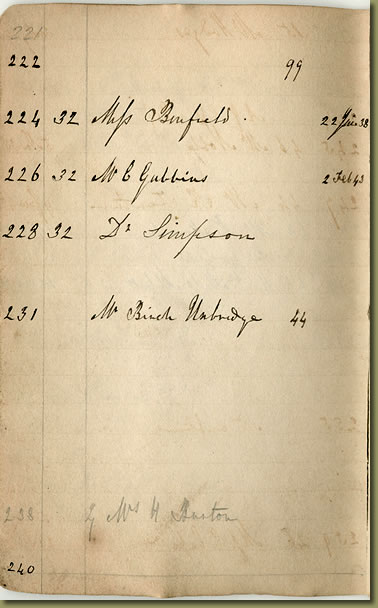 221
222 99
224 32 Miss Benfield. 22 Jun 38
226 32 Mr C Gubbins 2 Feb 43
228 32 Dr Simpson
231 Mr Birch Uxbridge 44
238 Mrs H Burton
240